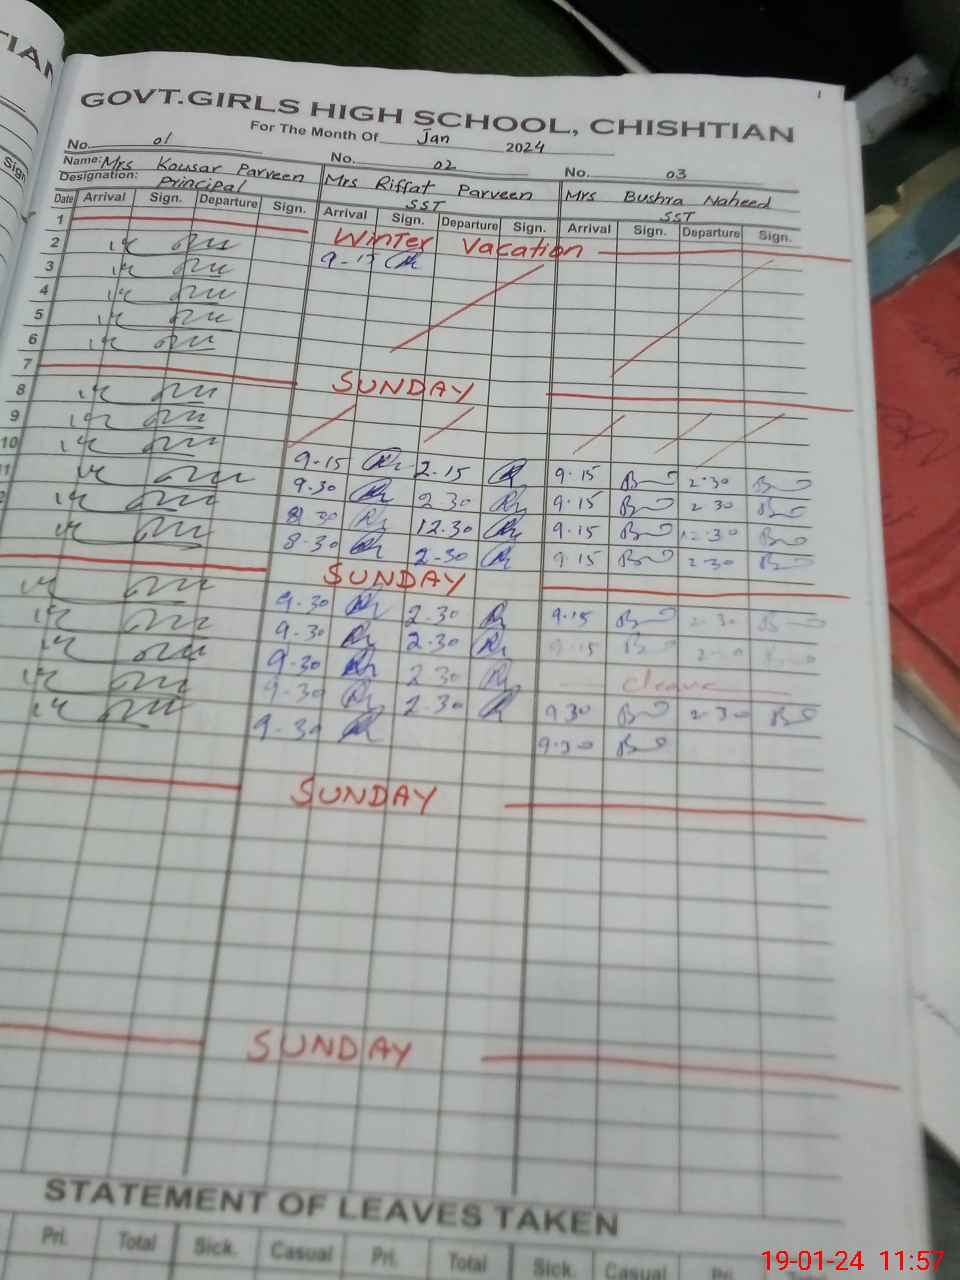 TIAN
Sign
1
GOVT.GIRLS HIGH SCHOOL, CHISHTIAN
For The Month Of Jan 2024
No. 01 No. 02 No. 03
Name: Mrs Kousar Parveen Mrs Riffat Parveen Mrs Bushra Naheed
Designation: Principal SST SST
Date Arrival Sign. Departure Sign. Arrival Sign. Departure Sign. Arrival Sign. Departure Sign.
1 Winter Vacation
2 9-15
3
4
5
6
7 SUNDAY
8
9
10
11 9-15 2-15 9-15 2-30
2 9-30 2 30 9-15 2 30
8 30 12.30 9-15 12-30
8-30 2-30 9-15 2-30
SUNDAY
9-30 2-30 9-15 2-30
9-30 2-30 9-15
9-30 2 30 Cleave
9-30 2-30 9 30 2-30
9-30 9-30
SUNDAY
SUNDAY
STATEMENT OF LEAVES TAKEN
Pri. Total Sick. Casual Pri. Total Sick. Casual Pri.
19-01-24 11:57